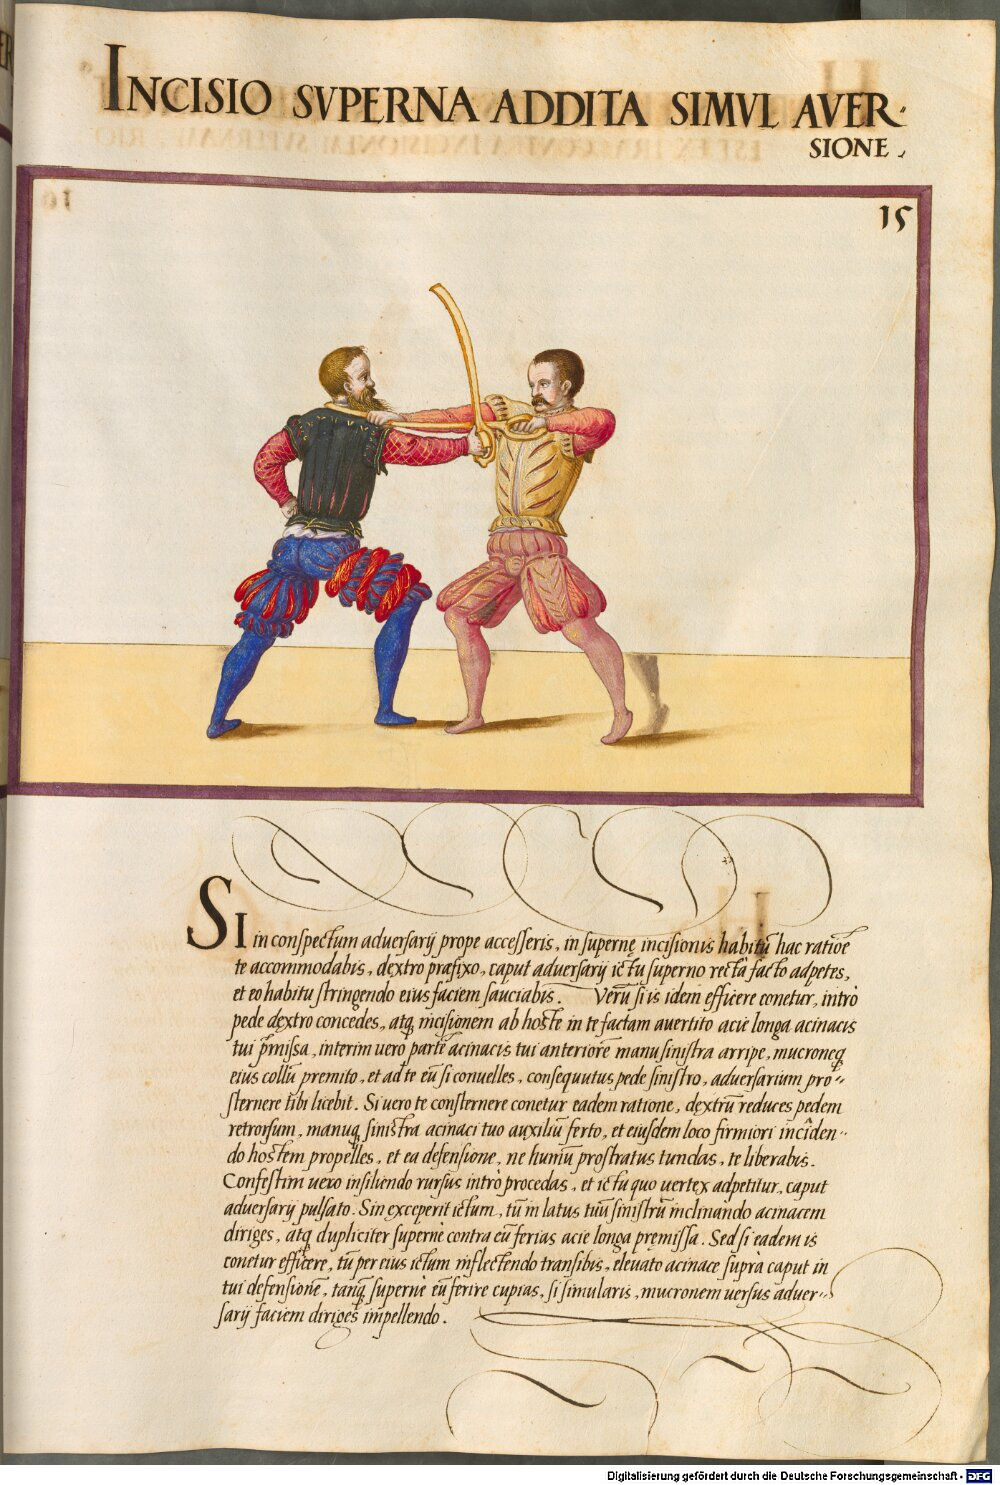 INCISIO SVPERNA ADDITA SIMVL AVER-
SIONE.
15
SI in conspectum adversarij prope accesseris, in supernę incisionis habitũ hac ratiõe
te accommodabis, dextro præfixo, caput adversarij ictu superno recta facto adpetes,
et eo habitu stringendo eius faciem sauciabis. Verũ si is idem efficere conetur, intrò
pede dextro concedes, atq̃ incisionem ab hoste in te factam avertito acie longa acinacis
tui p̃missa, interim uero partẽ acinacis tui anteriorẽ manu sinistra arripe, mucroneq̃
eius collũ premito, et ad te eũ si conuelles, consequutus pede sinistro, adversarium pro-
sternere tibi licebit. Si uero te consternere conetur eadem ratione, dextrũ reduces pedem
retrorsum, manuq̃ sinistra acinaci tuo auxiliũ ferto, et eiusdem loco firmiori inciden-
do hostem propelles, et ea defensione, ne humũ prostratus tundas, te liberabis.
Confestim uero insiliendo rursus intrò procedas, et ictu quo uertex adpetitur, caput
adversarij pulsato. Sin exceperit ictum, tũ in latus tuũ sinistrũ inclinando acinacem
diriges, atq̃ dupliciter supernè contra eũ ferias acie longa pręmissa. Sed si eadem is
conetur efficere, tũ per eius ictum inflectendo transibis, eleuato acinace suprà caput in
tui defensionẽ, tanq̃ supernè eũ ferire cupias, si simularis, mucronem uersus adver-
sarij faciem diriges impellendo.
Digitalisierung gefördert durch die Deutsche Forschungsgemeinschaft - DFG